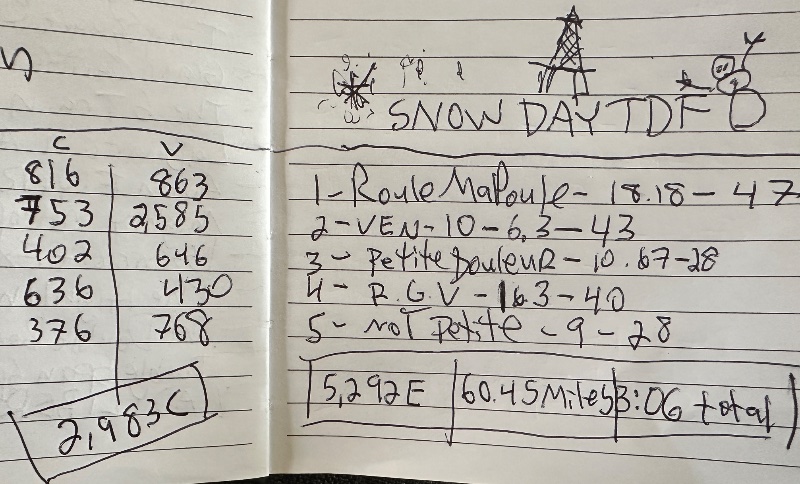 C V
816 863
753 2,585
402 646
636 430
376 768
2,983C
SNOW DAY TDF
1 - RouleMaPoule - 18.18 - 47
2 - VEN - 10 - 6,3 - 43
3 - PetiteDouleuR - 10.67 - 28
4 - R.G.V - 16.3 - 40
5 - NOT Petite - 9 - 28
5,292E 60.45Miles 3:06 total